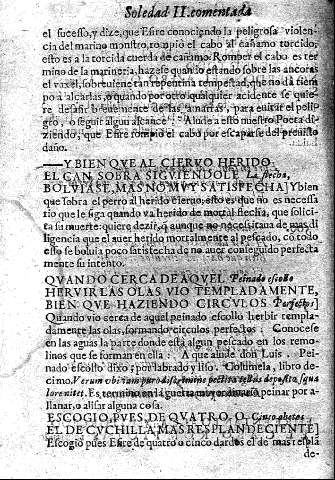 Soledad II. comentada
el sucesso, y dize, que Efire conociendo la peligrosa violen-
cia del marino monstro, rompio el cabo al cañamo torcido,
esto es a la torcida cuerda de cañamo. Romper el cabo es ter
mino de la marineria, hazese quando estando sobre las ancoras
el vaxel, sobreuiene tan repentina tempestad, que no dà tiem
po a alçarlas, o quando por otro qualquier accidente se quie-
re desasir breuemente de las amarras, para euitar el peli-
gro, o seguir algun alcance. Alude a esto nuestro Poeta di-
ziendo, que Efire rompio el cabo por escaparse del preuisto
daño.
—Y BIEN QVE AL CIERVO HERIDO
EL CAN SOBRA SIGVIENDOLE La flecha,
BOLVIASE, MAS NO MVY SATISFECHA] Y bien
que sobra el perro al herido cieruo, esto es que no es necessa
rio que le siga quando va herido de mortal flecha, que solici-
ta su muerte: quiere dezir, q aunque no necessitaua de mas di
ligencia que el auer herido mortalmente al pescado, cō todo
esso se boluia poco satisfecha de no auer conseguido perfecta
mente su intento.
QVANDO CERCA DE AQVEL Peinado escollo
HERVIR LAS OLAS VIO TEMPLADAMENTE,
BIEN QVE HAZIENDO CIRCVLOS Perfectos]
Quando vio cerca de aquel peinado escollo herbir templada
damente las olas, formando circulos perfectos. Conocese
en las aguas la parte donde està algun pescado en los remo-
linos que se forman en ella: A que alude don Luis. Pei-
nado escollo dixo; por labrado y liso. Columela, libro de-
cimo. Verum ubi iam puro discrimine pectita tellus deposito squa
lore nitet. Es termino en la guerra
peinar por a-
llanar, o alisar alguna cosa.
ESCOGIO, PVES, DE QVATRO, O Cinco abetos
EL DE CVCHILLA MAS RESPLANDECIENTE]
Escogio pues Efire de quatro o cinco dardos el de mas respla
de-